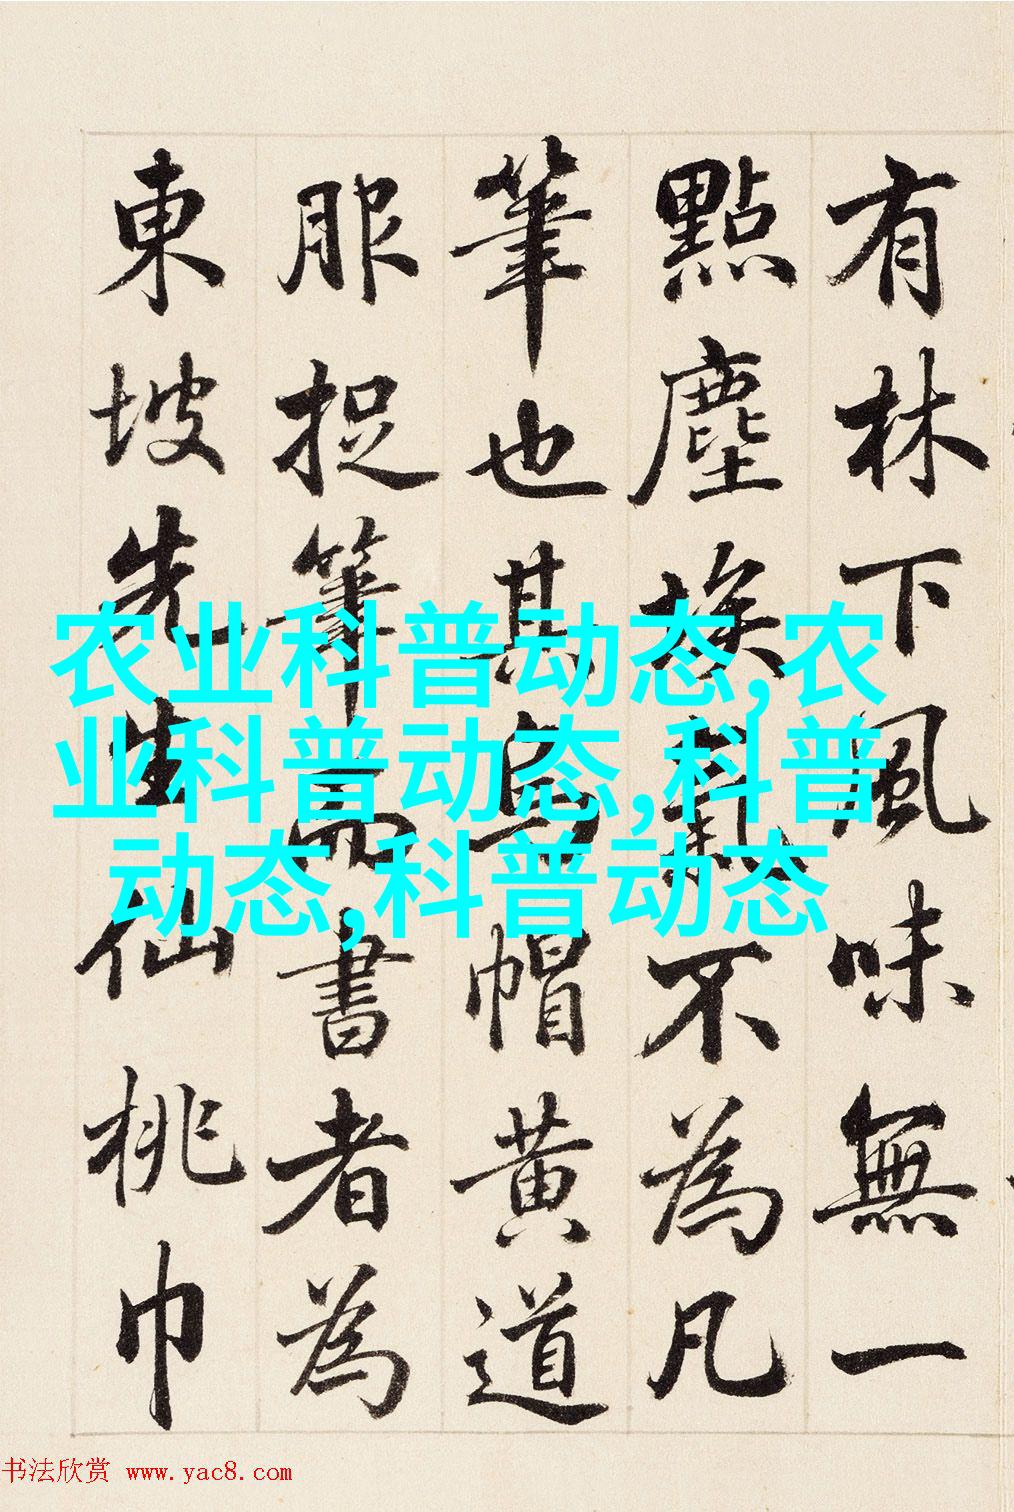 有林下風味無一
點塵埃氣不為凡
筆也其烏帽黃道
服捉筆而書者為
東坡先生仙桃巾
农业科普动态,农
业科普动态,科普
动态,科普动态
书法欣赏 www.yac8.com